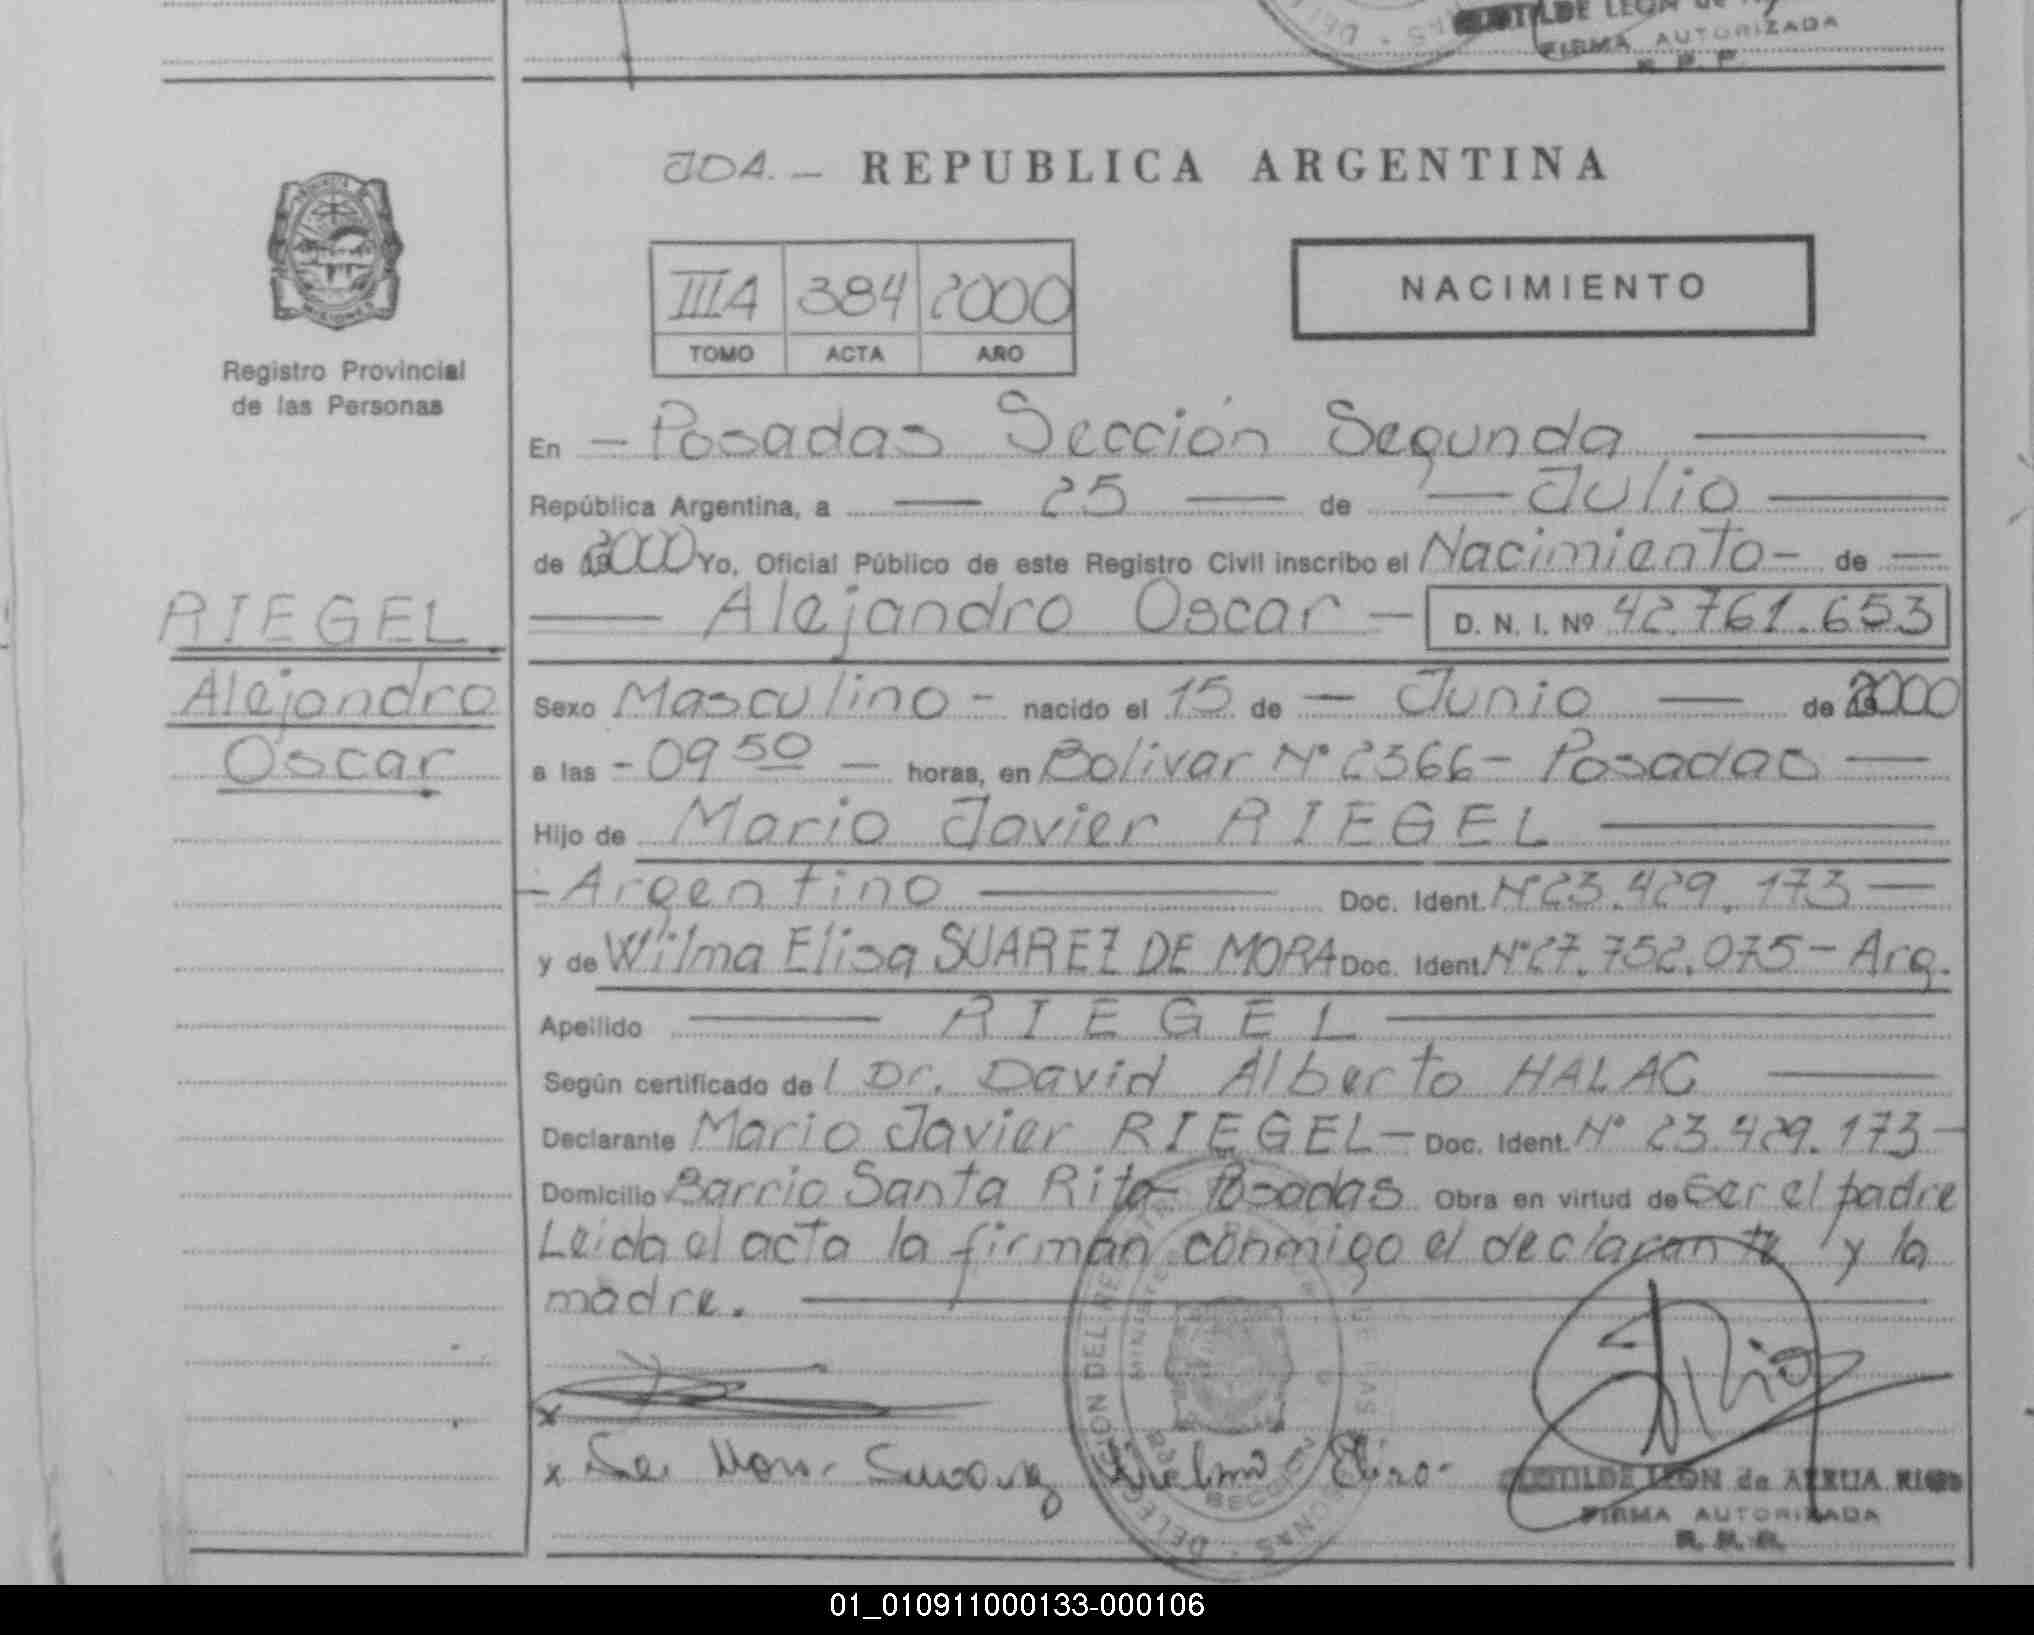 FIRMA AUTORIZADA
JDA. — REPUBLICA ARGENTINA
IIIA 384 2000
TOMO ACTA AÑO
NACIMIENTO
Registro Provincial
de las Personas
RIEGEL
Alejandro
Oscar
En — Posadas Sección Segunda
República Argentina, a — 25 — de — Julio
de 2000 Yo, Oficial Público de este Registro Civil inscribo el Nacimiento - de —
— Alejandro Oscar — D. N. I. Nº 42.761.653
Sexo Masculino - nacido el 15 de — Junio — de 2000
a las - 09 50 — horas, en Bolivar Nº 2366 - Posadas —
Hijo de Mario Javier RIEGEL
- Argentino — Doc. Ident. Nº 23.429.173 —
y de Wilma Elisa SUAREZ DE MORA Doc. Ident. Nº 27.752.075 - Arg.
Apellido — RIEGEL —
Según certificado del Dr. David Alberto HALAC —
Declarante Mario Javier RIEGEL - Doc. Ident. Nº 23.429.173 -
Domicilio Barrio Santa Rita - Posadas Obra en virtud de ser el padre
Leida el acta la firman conmigo el declarante y la
madre.
x
x De Mora Suarez Wilma Elisa
LEON de
FIRMA AUTORIZADA
R. P. P.
01_010911000133-000106